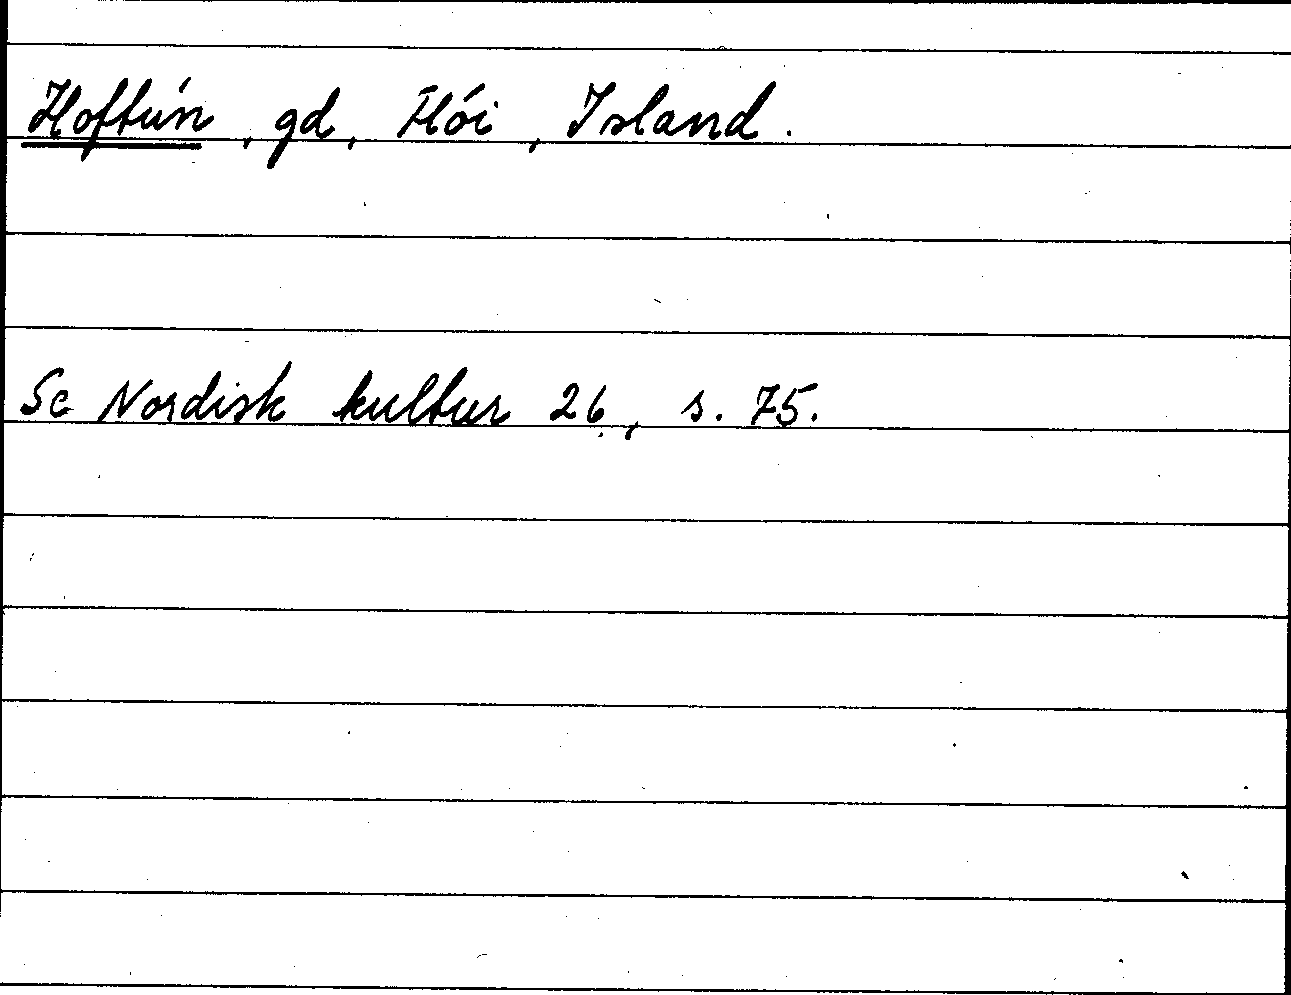 Hoftún, gd, Flói, Island.
Se Nordisk kultur 26, s. 75.